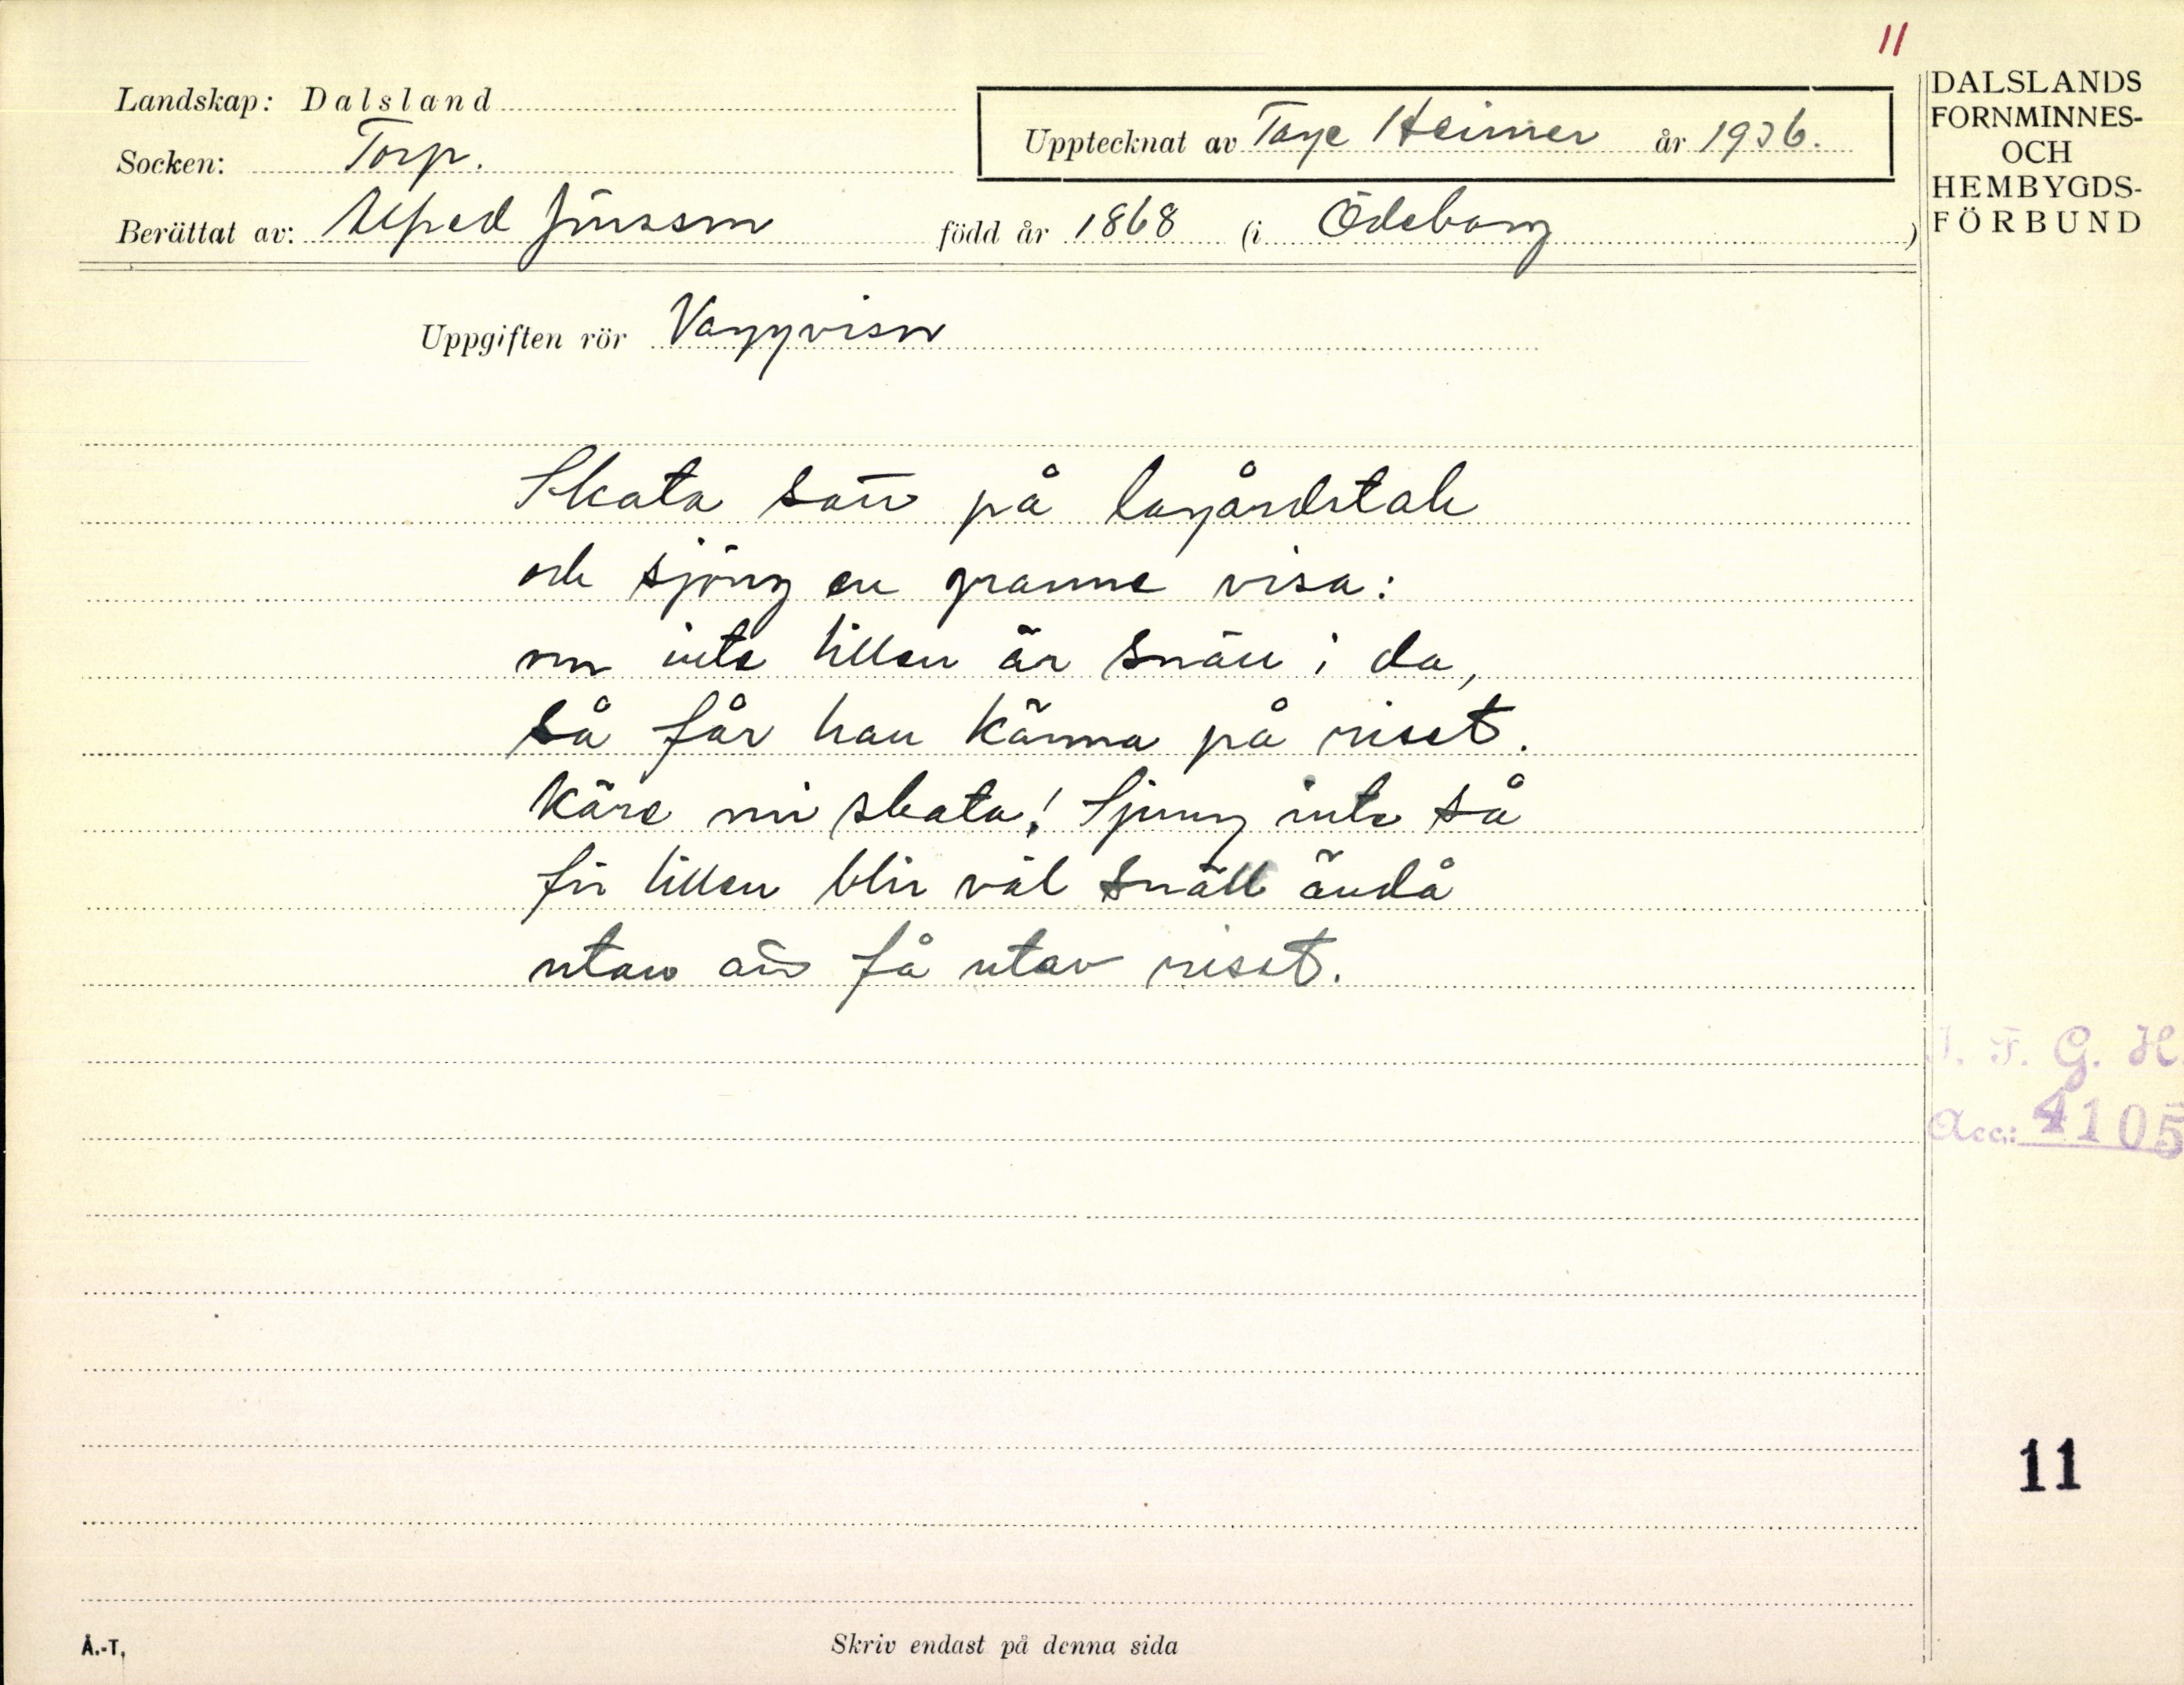 11
Landskap: Dalsland
Socken: Torp.
Upptecknat av Tage Heimer år 1936.
Berättat av: Alfred Jönsson född år 1868 (i Ödeborg)
DALSLANDS
FORNMINNES-
OCH
HEMBYGDS-
FÖRBUND
Uppgiften rör Vaggvisor
Skata satt på lagårdstak
och sjöng en granne visa:
om inte lillen är snäll i da,
så får han känna på riset.
Käre min skata! Sjung inte så
för lillen blir väl snäll ändå
utan att få utav riset.
I. F. G. H.
Acc.: 4105
11
Å.-T.
Skriv endast på denna sida